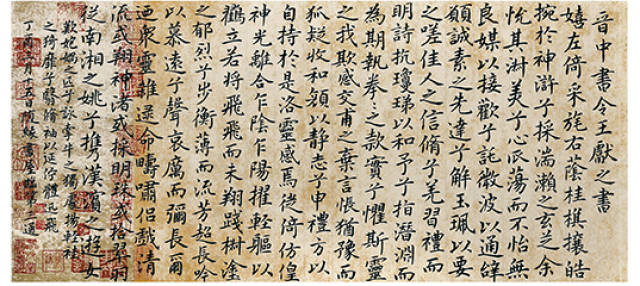 晉中書令王獻之書
嬉左倚采旄右蔭桂旗攘皓
捥於神滸兮採湍瀨之玄芝余
悅其淑美兮心振蕩而不怡無
良媒以接歡兮託微波以通辭
願誠素之先達兮解玉珮以要
之嗟佳人之信脩兮羌習禮而
明詩抗瓊珶以和予兮指潛淵而
為期執拳〻之款實兮懼斯靈
之我欺感交甫之棄言悵猶豫而
狐疑收和顏以静志兮申禮方以
自持於是洛靈感焉徙倚仿偟
神光離合乍陰乍陽擢輕軀以
鶴立若將飛飛而未翔踐椒塗
之郁烈兮步衡薄而流芳超長吟
以慕遠兮聲哀厲而彌長爾
迺衆靈雜遝命疇嘯侶戲清
流或翔神渚或採明珠或拾翠羽
從南湘之姚兮攜漢濱之遊女
歎匏媧之匹兮詠牽牛之獨處揚輕桂
之猗靡兮翳脩袖以延佇體迅飛
丁酉 月 五日隨緣書屋臨第 通